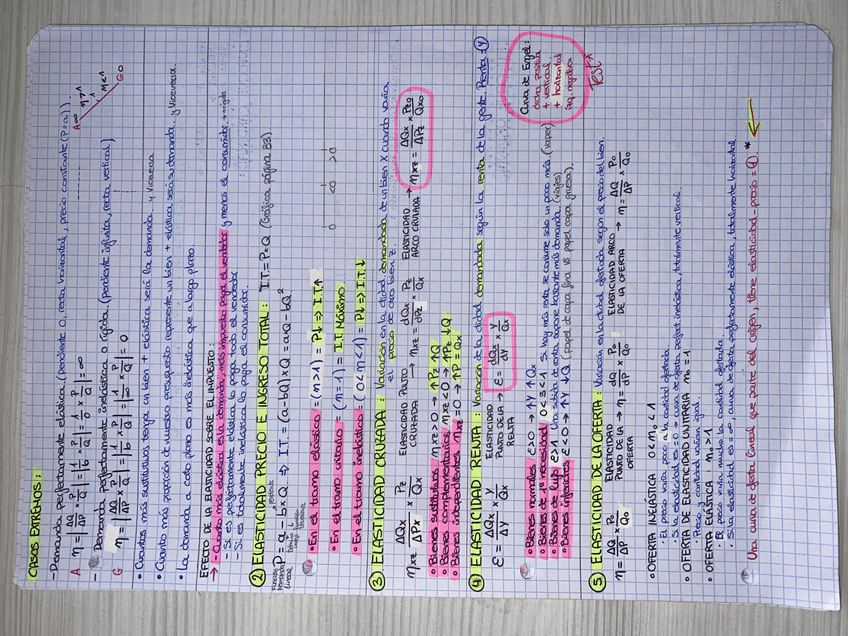 CASOS EXTREMOS:
- Demanda perfectamente elástica. (pendiente 0, recta horizontal, precio constante (P=a)).
A η = |ΔQ/ΔP × P/Q| = |1/b × P/Q| = |1/0 × P/Q| = ∞
- Demanda perfectamente inelástica o rígida. (pendiente infinita, recta vertical)
G η = |ΔQ/ΔP × P/Q| = |1/b × P/Q| = |1/∞ × P/Q| = 0
A ∞
η>1
η<1
G 0
• Cuantos más sustitutivos tenga un bien + elástica será la demanda. y viceversa
• Cuanto más proporción de nuestro presupuesto represente un bien + elástica será su demanda. y viceversa.
• La demanda a corto plazo es más inelástica que a largo plazo.
EFECTO DE LA ELASTICIDAD SOBRE EL IMPUESTO:
→ - Cuanto más elástica es la demanda, más impuesto paga el vendedor y menos el consumidor.
- Si es perfectamente elástica lo paga todo el vendedor
- Si es totalmente inelástica lo paga el consumidor.
② ELASTICIDAD PRECIO E INGRESO TOTAL: I.T. = P×Q (Gráfica página 33)
P = a - b×Q → I.T. = (a-bQ)×Q = aQ - bQ²
Función demanda lineal
pendiente
• En el tramo elástico = (η>1) = P↓ ⇒ I.T.↑
• En el tramo unitario = (η=1) = I.T. Máximo.
• En el tramo inelástico = (0<η<1) = P↓ ⇒ I.T.↓
③ ELASTICIDAD CRUZADA: Variación en la ctdad demandada de un bien X cuando varía
el precio de otro bien Z.
ηxz = ΔQx/ΔPz × Pz/Qx
ELASTICIDAD PUNTO CRUZADA → ηxz = dQx/dPz × Pz/Qx
ELASTICIDAD ARCO CRUZADA → ηxz = ΔQx/ΔPz × Pz0/Qx0
• Bienes sustitutivos ηxz>0 → ↑Pz ↑Q
• Bienes complementarios ηxz<0 → ↑Pz ↓Q
• Bienes independientes ηxz=0 → ↑P = Qx
④ ELASTICIDAD RENTA: Variación de la ctdad demandada según la renta de la gente. Renta = Y
ε = ΔQx/ΔY × Y/Qx
ELASTICIDAD PUNTO DE LA RENTA → ε = dQx/dY × Y/Qx
Curva de Engel:
dicha positiva
+ vertical
+ horizontal
inq. negativa
Test*
• Bienes normales ε>0 → ↑Y ↑Q
• Bienes de 1ª necesidad 0<ε<1 Si hay más renta se consume solo un poco más.
• Bienes de lujo ε>1 Una subida de renta supone bastante más demanda. (viajes)
• Bienes inferiores ε<0 → ↑Y ↓Q (papel de capa fina vs papel capa gruesa).
⑤ ELASTICIDAD DE LA OFERTA: Variación en la ctdad ofertada según el precio del bien.
η = ΔQ/ΔP × P0/Q0
ELASTICIDAD PUNTO DE LA OFERTA → η = dQ/dP × P0/Q0
ELASTICIDAD ARCO DE LA OFERTA → η = ΔQ/ΔP × P0/Q0
• OFERTA INELÁSTICA 0<η0<1
· El precio varía poco a la cantidad ofertada.
· Si la elasticidad es = 0 → curva de oferta perfect. inelástica, totalmente vertical.
• OFERTA DE ELASTICIDAD UNITARIA η0 = 1
· Precio y cantidad varían igual.
• OFERTA ELÁSTICA: η0>1
· El precio varía mucho la cantidad ofertada
· Si la elasticidad es = ∞, curva de oferta perfectamente elástica, totalmente horizontal.
Una curva de oferta lineal que parte del origen, tiene elasticidad-precio = 1. *